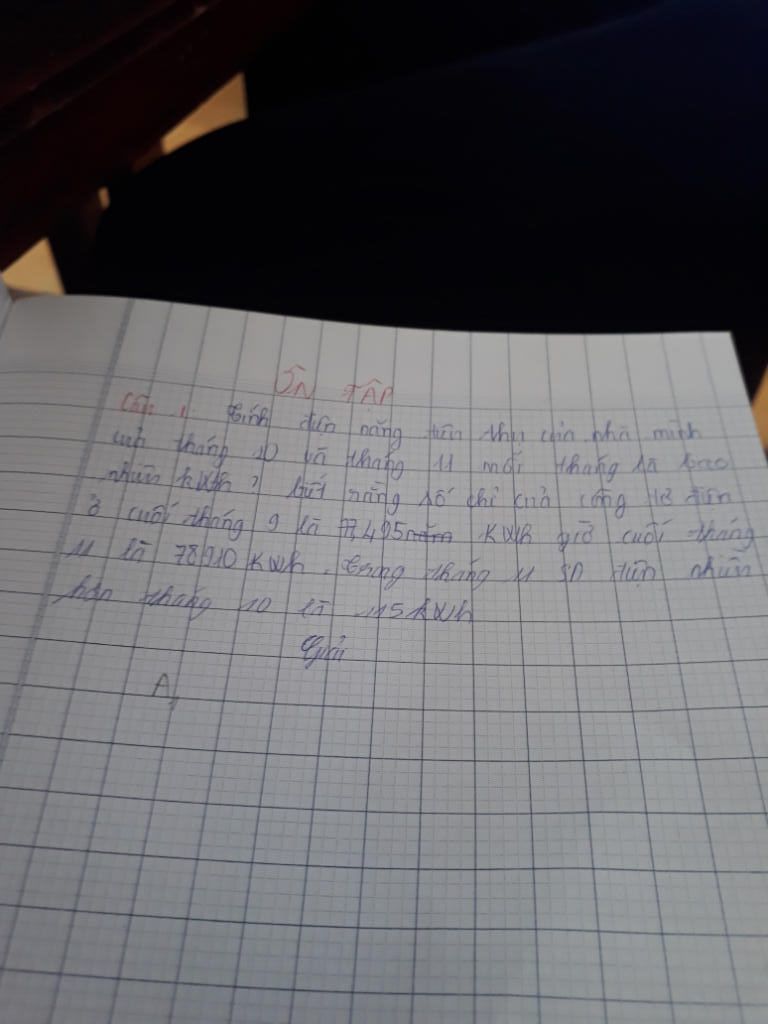 ÔN TẬP
Câu 1: Tính điện năng tiêu thụ của nhà mình
của tháng 10 và tháng 11 mỗi tháng là bao
nhiêu kWh? biết rằng số chỉ của công tơ điện
ở cuối tháng 9 là 77,495 kWh giờ cuối tháng
11 là 78910 kWh. trong tháng 11 SD điện nhiều
hơn tháng 10 là 115 kWh
Giải
A,